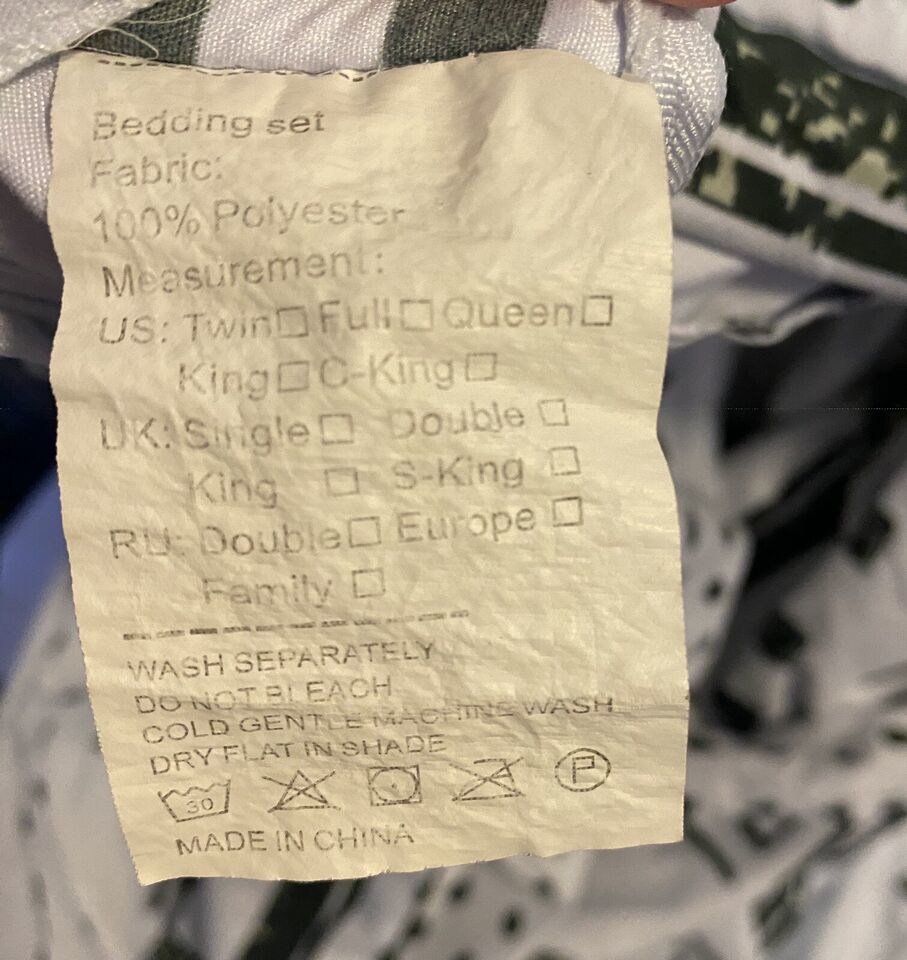 Bedding set
Fabric:
100% Polyester
Measurement:
US: Twin☐ Full☐ Queen☐
King☐ C-King☐
UK: Single☐ Double ☐
King ☐ S-King ☐
RU: Double☐ Europe ☐
Family ☐
WASH SEPARATELY
DO NOT BLEACH
COLD GENTLE MACHINE WASH
DRY FLAT IN SHADE
30 P
MADE IN CHINA